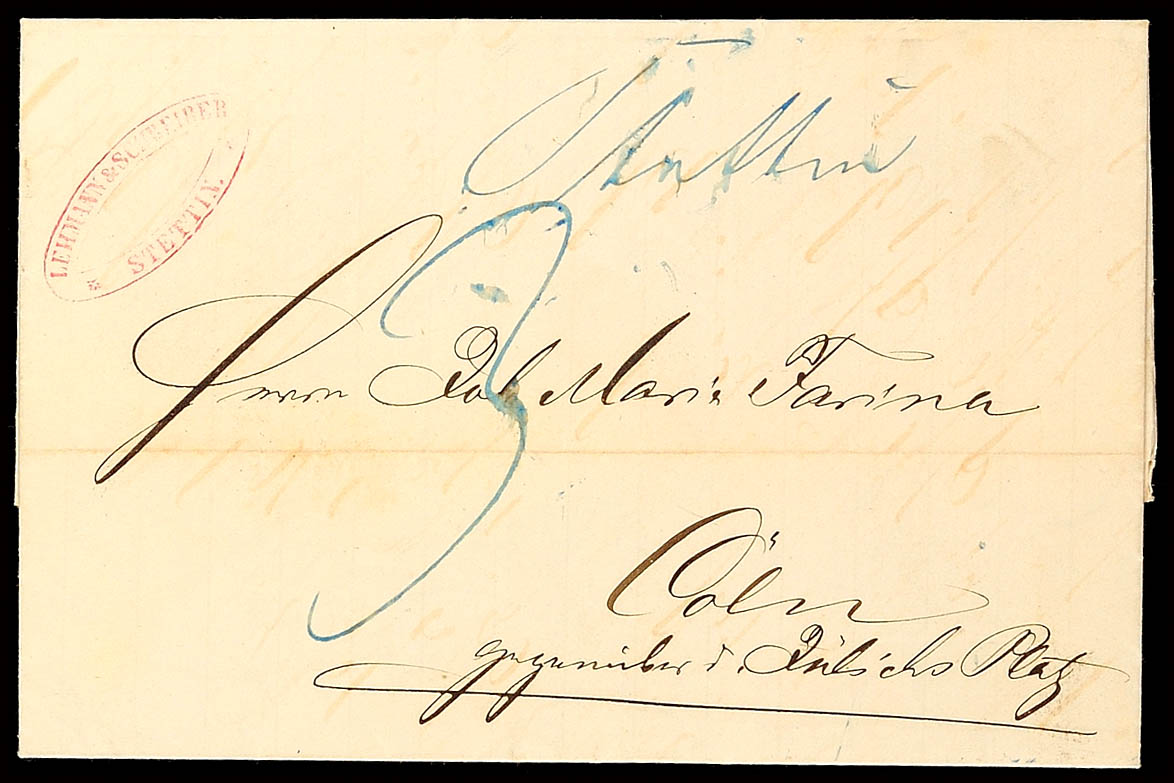 LEHMANN & SCHREIBER
STETTIN.
Stettin
3
Herrn Joh Maria Farina
Cöln
gegenüber d. Jülichs Platz